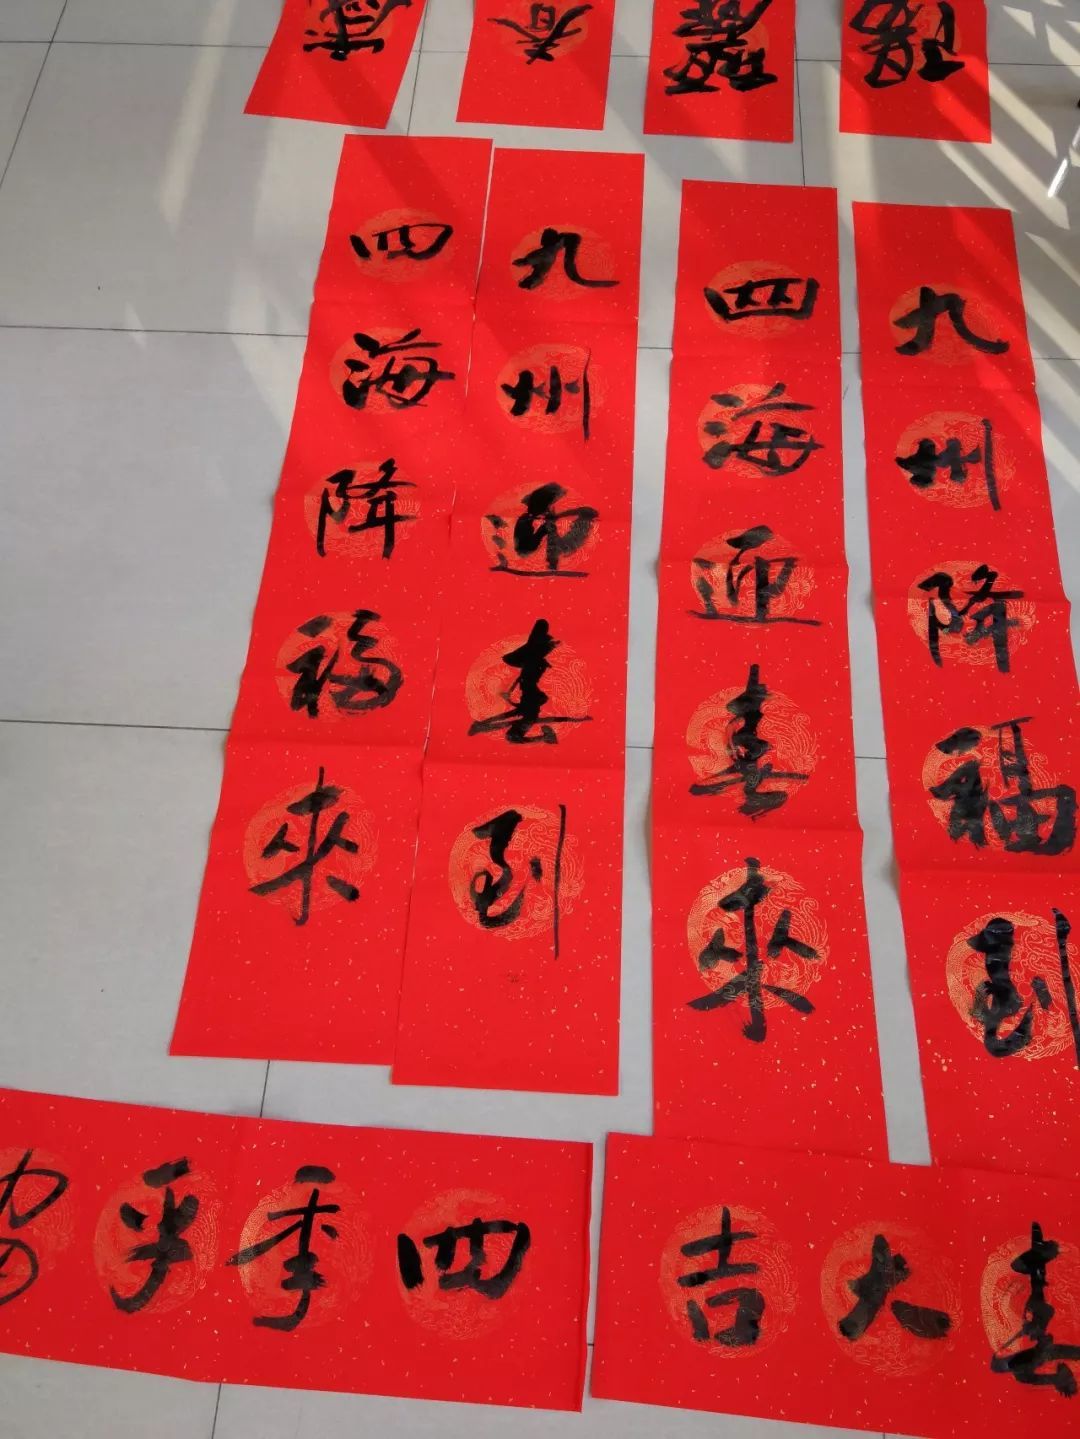 春
九州迎春到
四海降福來
九州降福到
四海迎春來
四季平安
春大吉